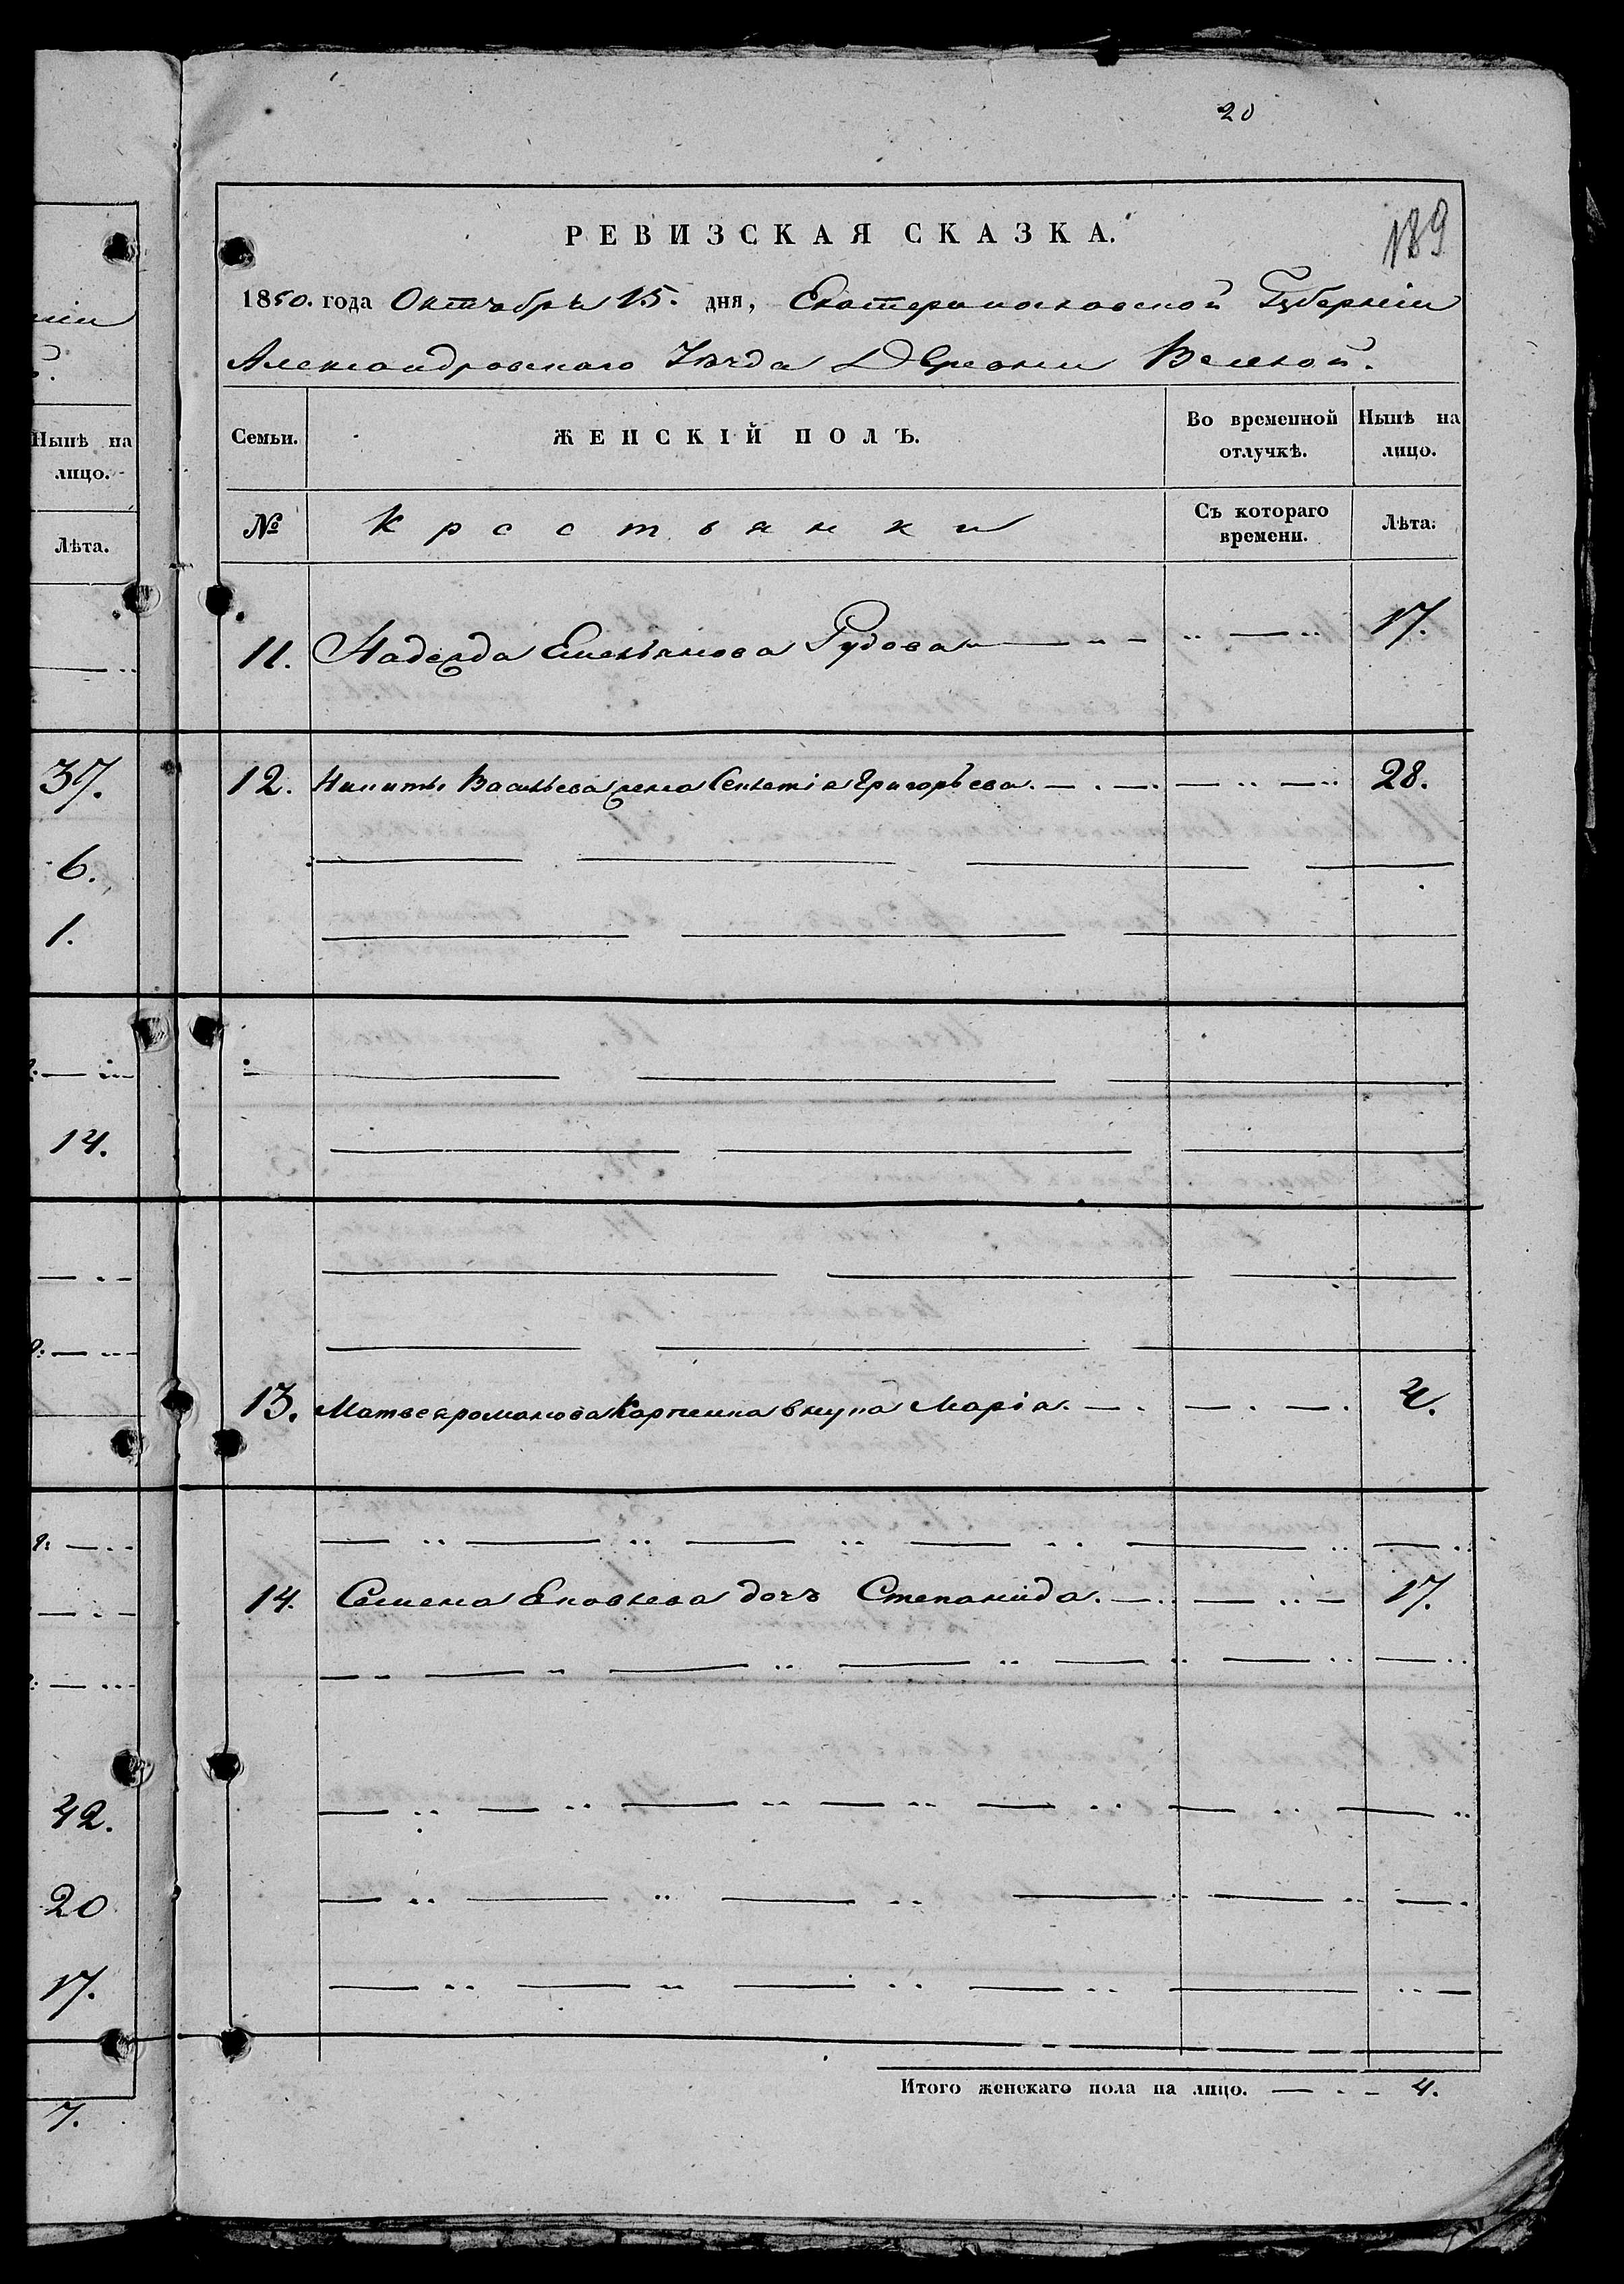 20
189
РЕВИЗСКАЯ СКАЗКА.
1850. года Октября 15. дня, Екатеринославской Губерніи
Александровскаго Уѣзда Деревни Веселой.
Семьи.
ЖЕНСКІЙ ПОЛЪ.
Во временной отлучкѣ.
Нынѣ на лицо.
№
Крестьянки
Съ котораго времени.
Лѣта.
11. Надежда Емельянова Рудова 17.
12. Никиты Васильева жена Григорьева. 28.
13. Матвея романова внука Марія. 4.
14. Семена дочь Степанида. 17.
Итого женскаго пола на лицо. 4.
ніи
Нынѣ на
лицо.
Лѣта.
37.
6.
1.
14.
42.
20
17.
7.